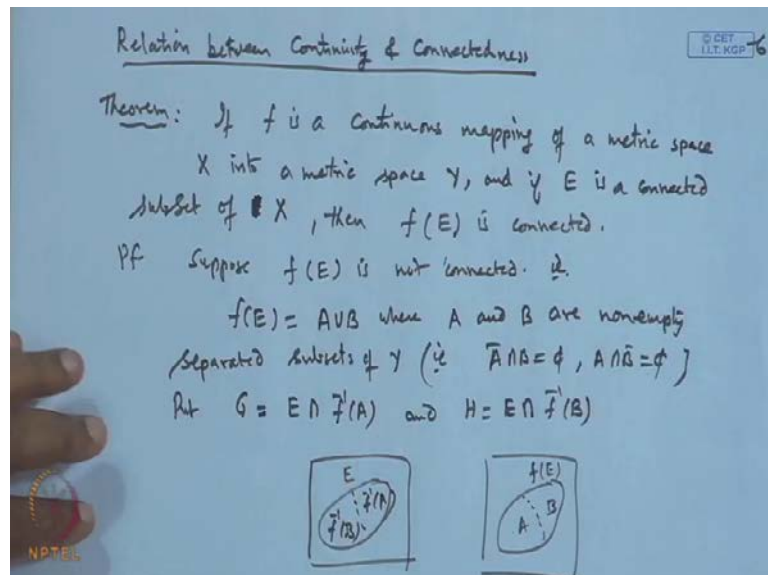 Relation between Continuity & Connectedness
© CET
I.I.T. KGP
6
Theorem: If f is a continuous mapping of a metric space
X into a metric space Y, and if E is a connected
subset of X, then f(E) is connected.
Pf Suppose f(E) is not connected. ie.
f(E) = A∪B where A and B are nonempty
separated subsets of Y (ie Ā∩B = ϕ, A∩B̄ = ϕ)
Put G = E ∩ f⁻¹(A) and H = E ∩ f⁻¹(B)
E
f(E)
f⁻¹(A)
B
f⁻¹(B)
A
NPTEL